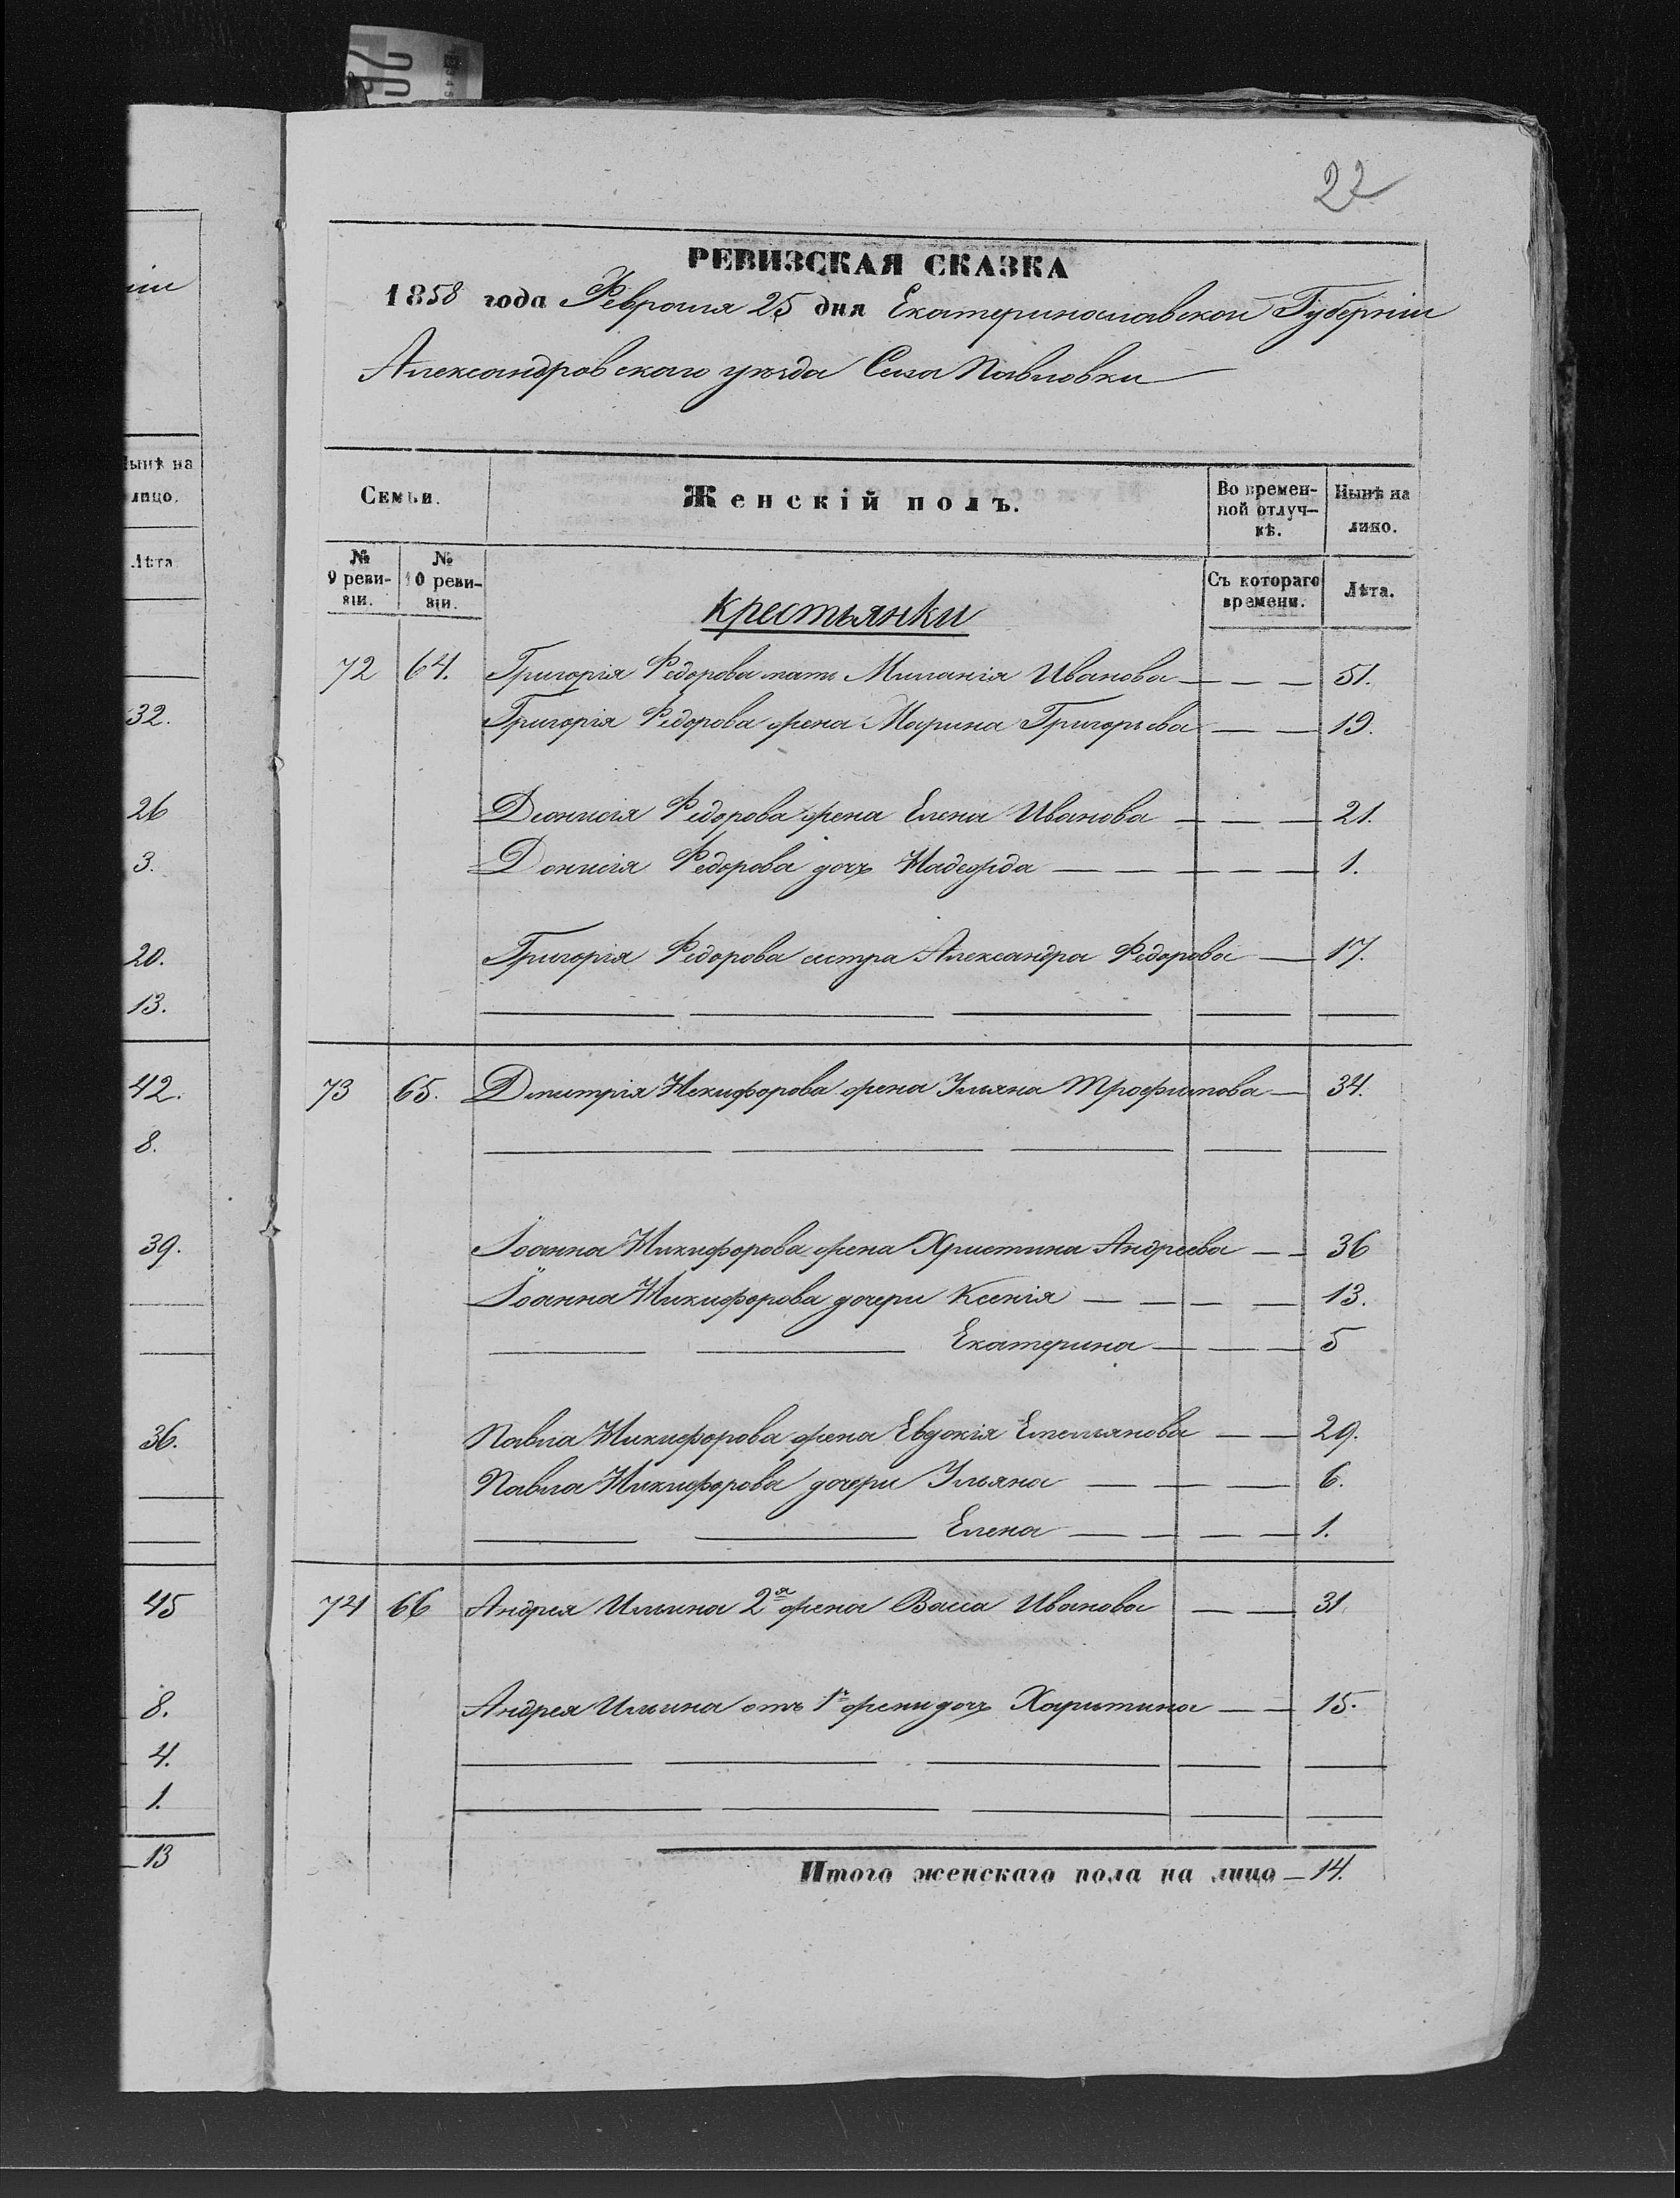 22
РЕВИЗСКАЯ СКАЗКА
1858 года Февраля 25 дня Екатеринославской Губерніи
Александровскаго уѣзда Села Павловки
Семьи.
Женскій полъ.
Во времен-
ной отлуч-
кѣ.
Нынѣ на
лицо.
№
9 реви-
зіи.
№
10 реви-
зіи.
Съ котораго
времени.
Лѣта.
крестьянки
72 64. Григорія Федорова мать Миланія Иванова — — — 51.
Григорія Федорова жена Марина Григорьева — — 19.
Діонисія Федорова жена Елена Иванова — — — 21.
Донисія Федорова дочь Надежда — — — — — 1.
Григорія Федорова сестра Александра Федорова — 17.
73 65. Дмитрія Никифорова жена Ульяна Трофимова — 34.
Іоанна Никифорова жена Христина Андреева — — 36
Іоанна Никифорова дочери Ксенія — — — — 13.
Екатерина — — — 5
Павла Никифорова жена Евдокія Емельянова — — 29.
Павла Никифорова дочери Ульяна — — — 6.
Елена — — — — 1.
74 66 Андрея Ильина 2я жена Васса Иванова — — 31
Андрея Ильина отъ 1й жени дочь Харитина — — 15.
Итого женскаго пола на лицо — 14.
ніи
Нынѣ на
лицо.
Лѣта
32.
26
3.
20.
13.
42.
8.
39.
36.
45
8.
4.
1.
13